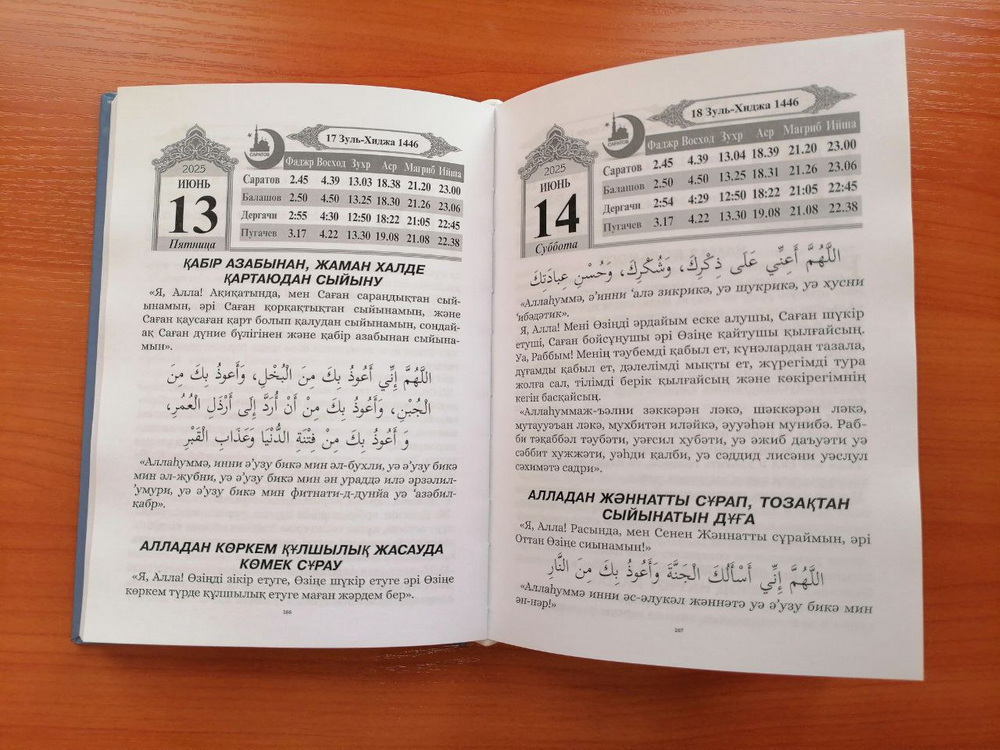 17 Зуль-Хиджа 1446
2025
ИЮНЬ
13
Пятница
САРАТОВ
Фаджр Восход Зухр Аср Магриб Ийша
Саратов 2.45 4.39 13.03 18.38 21.20 23.00
Балашов 2.50 4.50 13.25 18.30 21.26 23.06
Дергачи 2:55 4:30 12:50 18:22 21:05 22:45
Пугачев 3.17 4.22 13.30 19.08 21.08 22.38
ҚАБІР АЗАБЫНАН, ЖАМАН ХАЛДЕ
ҚАРТАЮДАН СЫЙЫНУ
«Я, Алла! Ақиқатында, мен Саған сараңдықтан сый-
ынамын, әрі Саған қорқақтықтан сыйынамын, және
Саған қаусаған қарт болып қалудан сыйынамын, сондай-
ақ Саған дүние бүлігінен және қабір азабынан сыйына-
мын».
اللَّهُمَّ إِنِّي أَعُوذُ بِكَ مِنَ الْبُخْلِ، وَأَعُوذُ بِكَ مِنَ
الْجُبْنِ، وَأَعُوذُ بِكَ مِنْ أَنْ أُرَدَّ إِلَى أَرْذَلِ الْعُمُرِ،
وَ أَعُوذُ بِكَ مِنْ فِتْنَةِ الدُّنْيَا وَعَذَابِ الْقَبْرِ
«Аллаһуммә, инни ә’узу бикә мин әл-бухли, уә ә’узу бикә
мин әл-җубни, уә ә’узу бикә мин ән ураддә илә әрзәлил-
’умури, уә ә’узу бикә мин фитнати-д-дунйа уә ‘азәбил-
қабр».
АЛЛАДАН КӨРКЕМ ҚҰЛШЫЛЫҚ ЖАСАУДА
КӨМЕК СҰРАУ
«Я, Алла! Өзіңді зікір етуге, Өзіңе шүкір етуге әрі Өзіңе
көркем түрде құлшылық етуге маған жәрдем бер».
266
18 Зуль-Хиджа 1446
2025
ИЮНЬ
14
Суббота
САРАТОВ
Фаджр Восход Зухр Аср Магриб Ийша
Саратов 2.45 4.39 13.04 18.39 21.20 23.00
Балашов 2.50 4.50 13.25 18.31 21.26 23.06
Дергачи 2:54 4:29 12:50 18:22 21:05 22:45
Пугачев 3.17 4.22 13.30 19.08 21.08 22.38
اللَّهُمَّ أَعِنِّي عَلَى ذِكْرِكَ، وَشُكْرِكَ، وَحُسْنِ عِبادَتِكَ
«Аллаһуммә, ә’инни ‘алә зикрикә, уә шукрикә, уә хусни
‘ибәдәтик».
Я, Алла! Мені Өзіңді әрдайым еске алушы, Саған шүкір
етуші, Саған бойсұнушы әрі Өзіңе қайтушы қылғайсың.
Уа, Раббым! Менің тәубемді қабыл ет, күнәлардан тазала,
дұғамды қабыл ет, дәлелімді мықты ет, жүрегімді тура
жолға сал, тілімді берік қылғайсың және көкірегімнің
кегін басқайсың.
«Аллаһуммаж-ъәлни зәккәрән ләкә, шәккәрән ләкә,
мутаууәъан ләкә, мухбитән иләйкә, әууәһән мунибә. Раб-
би тәқаббәл тәубәти, уәғсил хұбәти, уә әжиб даъуәти уә
сәббит хужжәти, уәһди қалби, уә сәддид лисәни уәслул
сәхимәтә садри».
АЛЛАДАН ЖӘННАТТЫ СҰРАП, ТОЗАҚТАН
СЫЙЫНАТЫН ДҰҒА
«Я, Алла! Расында, мен Сенен Жәннатты сұраймын, әрі
Оттан Өзіңе сиынамын!»
اللَّهُمَّ إِنِّي أَسْأَلُكَ الْجَنَّةَ وَأَعُوذُ بِكَ مِنَ النَّارِ
«Аллаһуммә инни әс-әлукәл жәннәтә уә ә’узу бикә мин
ән-нәр!»
267